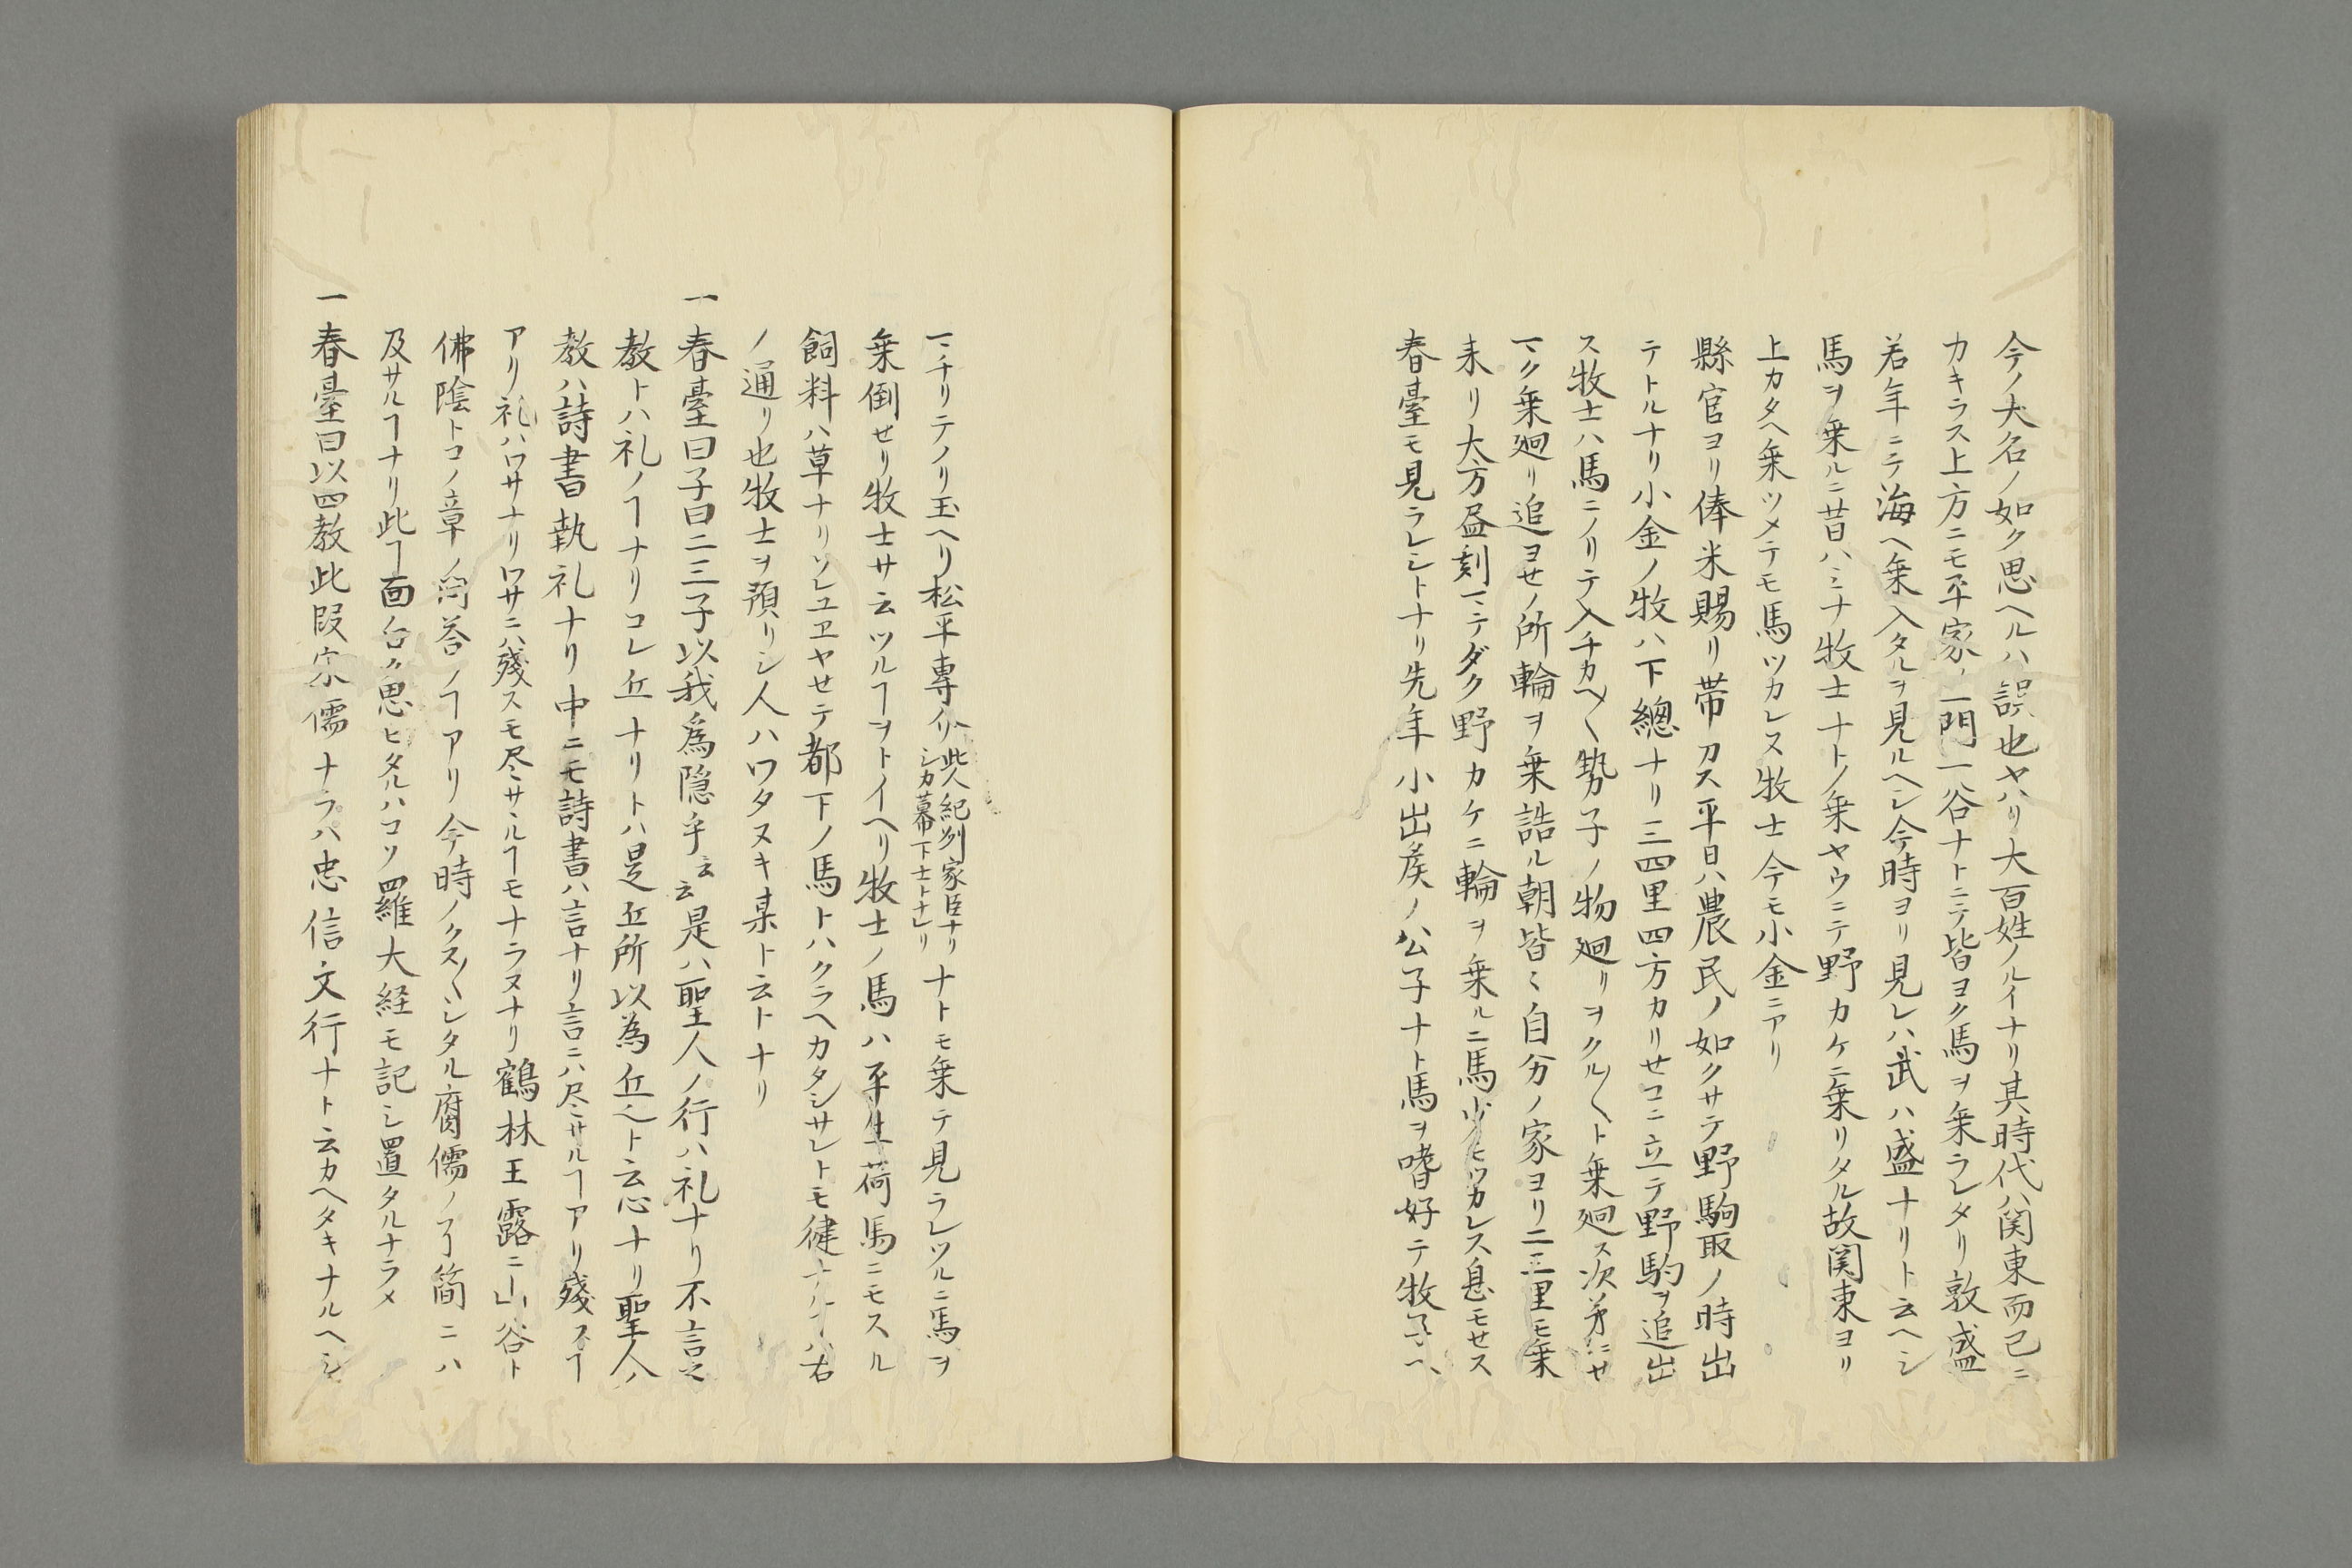 今ノ大名ノ如ク思ヘルハ誤也ヤハリ大百姓ノルイナリ其時代ハ関東而已ニ
カキラス上方ニモ平家ノ一門一谷ナトニテ皆ヨク馬ヲ乗ラレタリ敦盛
若年ニテ海ヘ乗入タルヲ見ルヘシ今時ヨリ見レハ武ハ盛ナリト云ヘシ
馬ヲ乗ルニ昔ハミナ牧士ナトノ乗ヤウニテ野カケニ乗リタル故関東ヨリ
上カタヘ乗ツメテモ馬ツカレス牧士今モ小金ニアリ
縣官ヨリ俸米賜リ帯刀ス平日ハ農民ノ如クサテ野駒取ノ時出
テトルナリ小金ノ牧ハ下總ナリ三四里四方カリセコニ立テ野駒ヲ追出
ス牧士ハ馬ニノリテ入チカヘ〱勢子ノ物廻リヲクル〱ト乗廻ス次第ニセ
マク乗廻リ追ヨセノ所輪ヲ乗詰ル朝皆〻自分ノ家ヨリ二三里モ乗
来リ大方昼刻マテダク野カケニ輪ヲ乗ルニ馬少モツカレス息モセス
春臺モ見ラレシトナリ先年小出矦ノ公子ナト馬ヲ嗜好テ牧子ヘ
マチリテノリ玉ヘリ松平專介此人紀列家臣ナリシカ幕下士トナレリナトモ乗テ見ラレツルニ馬ヲ
乗倒セリ牧士サ云ツルヿヲトイヘリ牧士ノ馬ハ平生荷馬ニモスル
飼料ハ草ナリソレユヱヤセテ都下ノ馬トハクラヘカタシサレトモ健ナルヿハ右
ノ通リ也牧士ヲ預リシ人ハワタヌキ某ト云トナリ
一春臺曰子曰二三子以我爲隠乎云云是ハ聖人ノ行ハ礼ナリ不言之
教トハ礼ノヿナリコレ丘ナリトハ是丘所以為丘也ト云心ナリ聖人ノ
教ハ詩書執礼ナリ中ニモ詩書ハ言ナリ言ニハ尽ニサルヿアリ殘スヿ
アリ礼ハワサナリワサニハ殘スモ尽ニサヽルヿモナラヌナリ鶴林玉露ニ山谷ト
佛陰トコノ章ノ問荅ノヿアリ今時ノクス〱シタル腐儒ノ了簡ニハ
及サルヿナリ此ヿ面白ク思ヒタルハコソ羅大経モ記シ置タルナラメ
一春臺曰以四教此段宋儒ナラハ忠信文行ナト云カヘタキナルヘシ